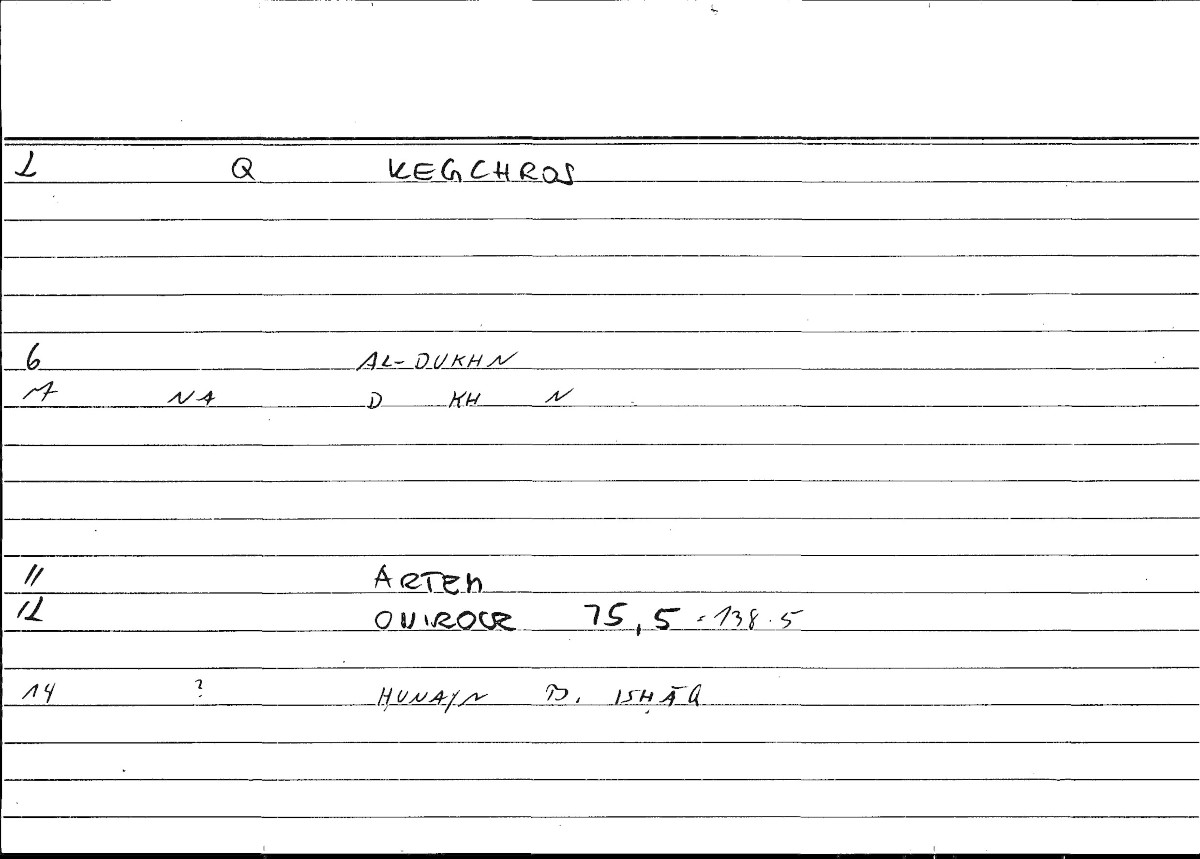 1 Q KEGCHROS
6 AL-DUKHN
7 NA D KH N
11 ARTEM
12 ONIROCR 75,5 = 138.5
14 ? ḤUNAYN B. ISḤĀQ